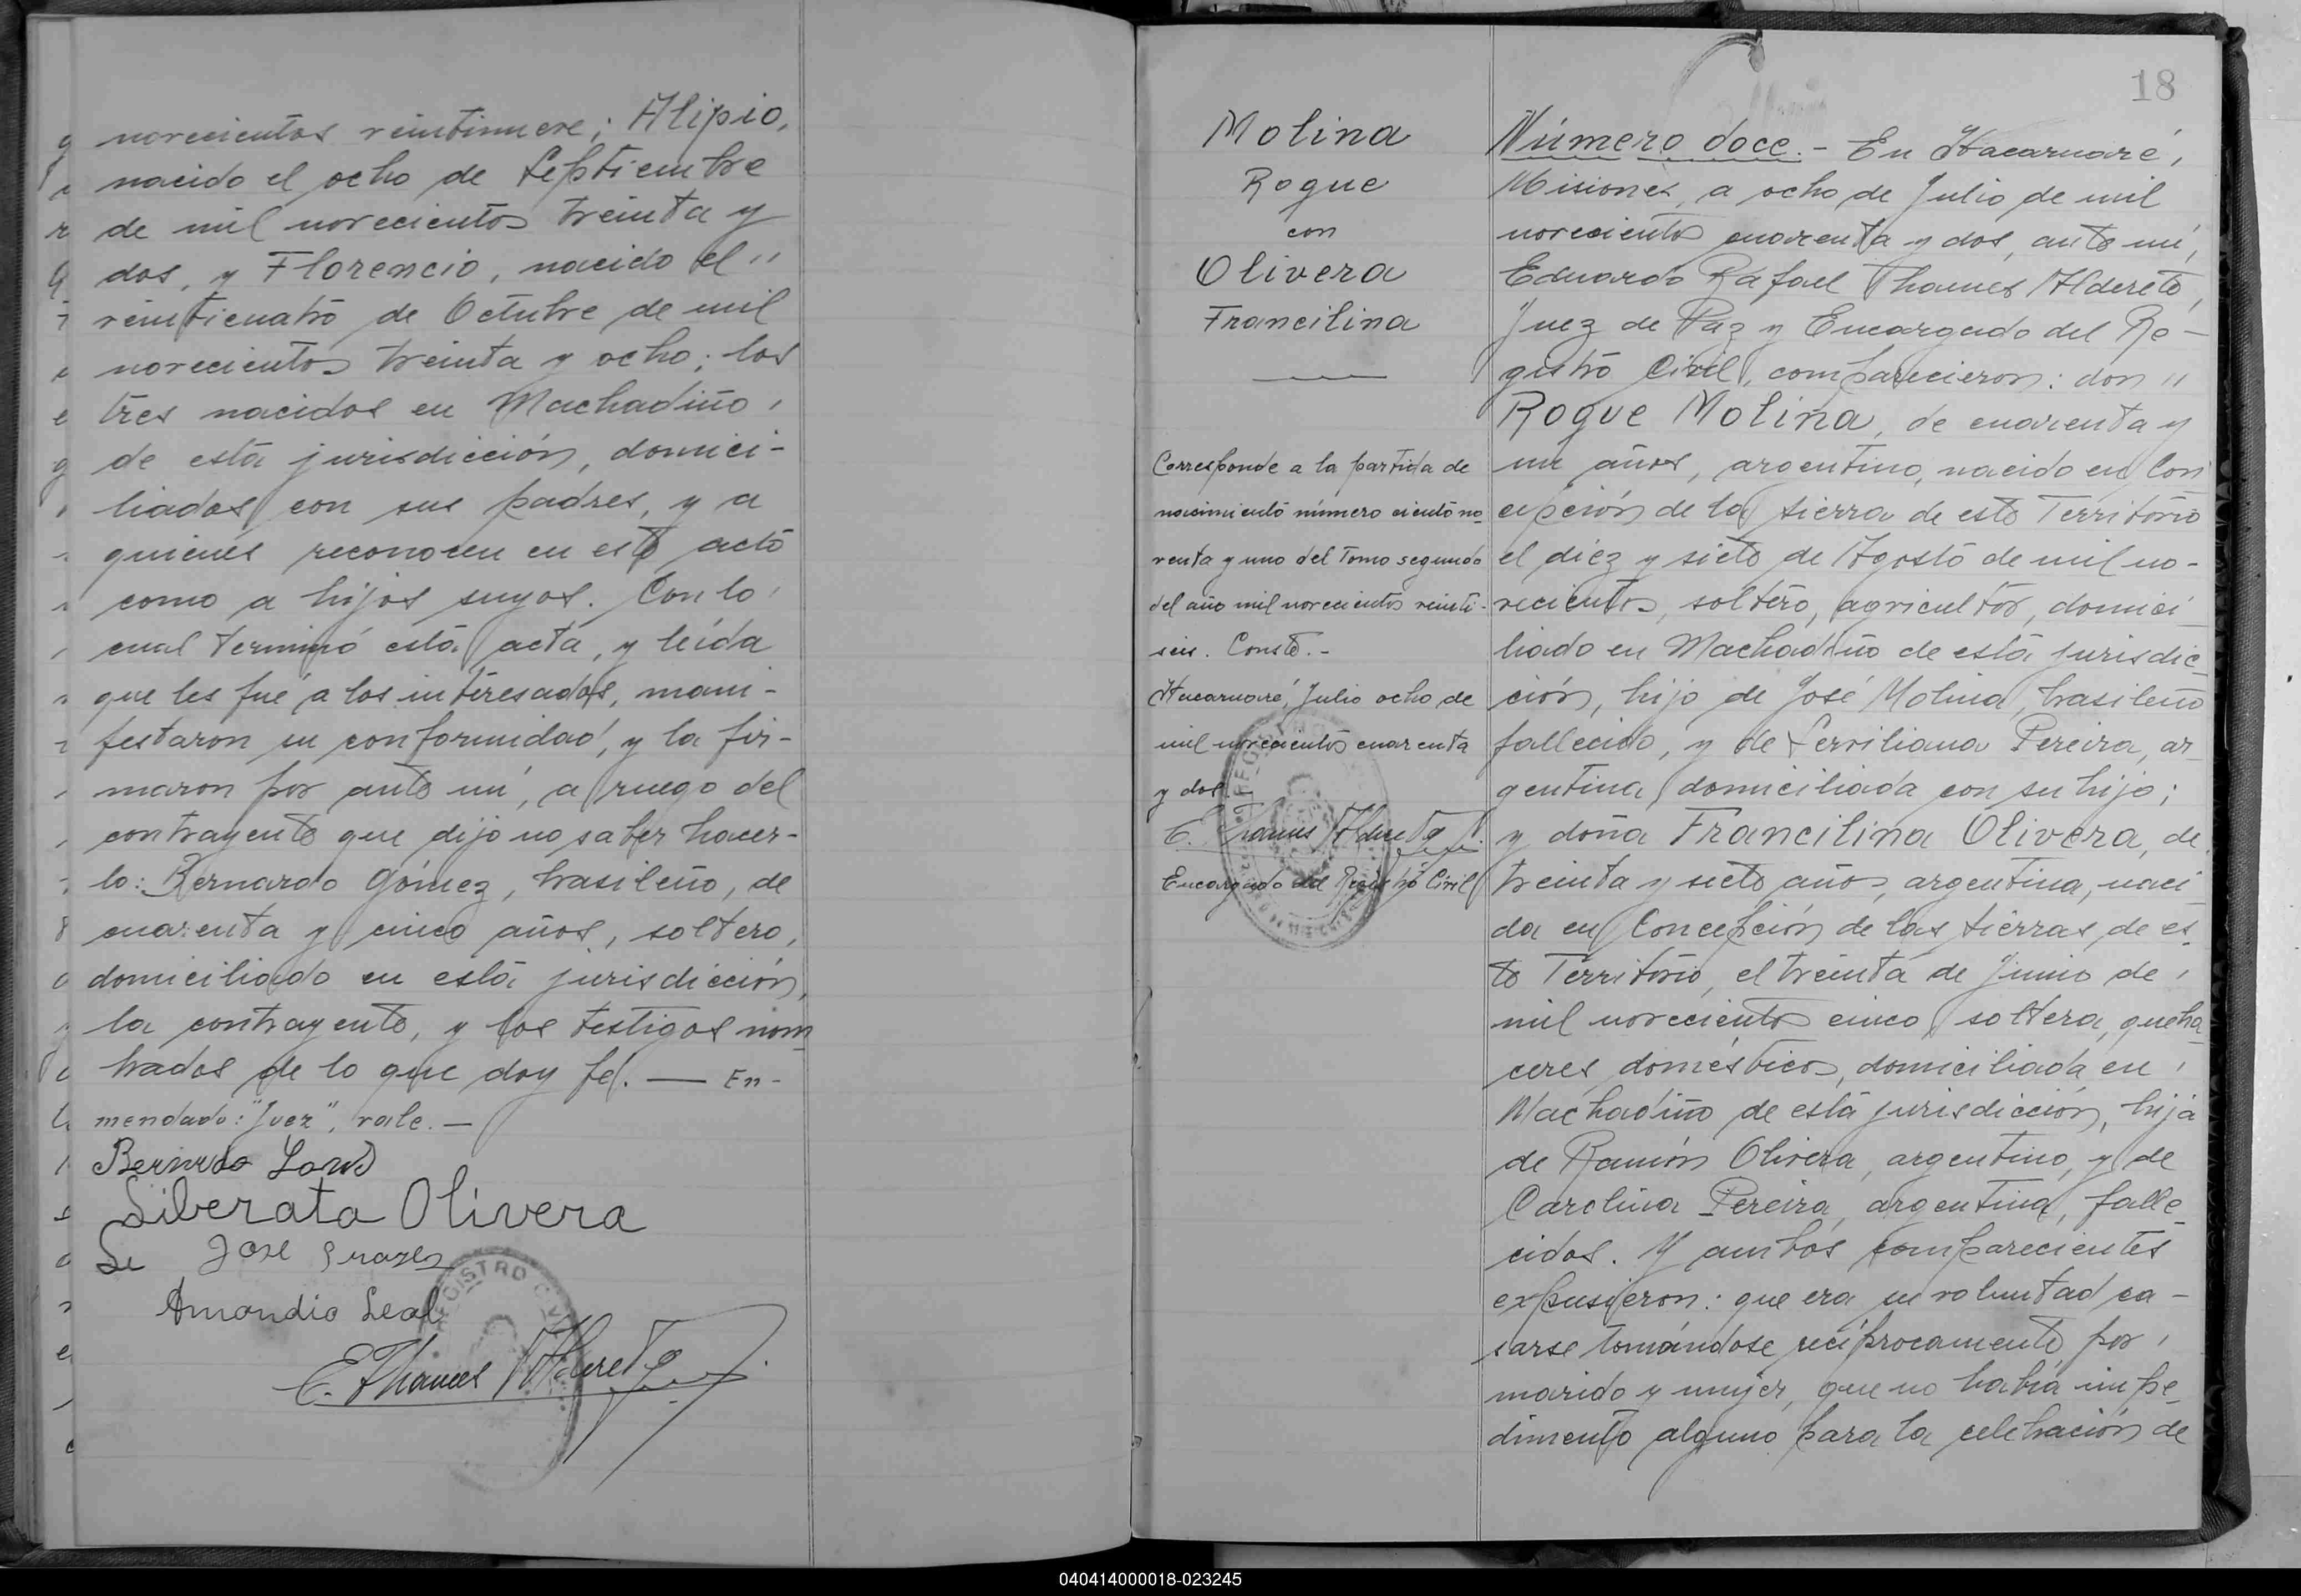 novecientos veintinueve; Alipio,
nacido el ocho de Septiembre
de mil novecientos treinta y
dos, y Florencio, nacido el "
veinticuatro de Octubre de mil
novecientos treinta y ocho; los
tres nacidos en Machadiño,
de esta jurisdicción, domici-
liados con sus padres, y a
quienes reconocen en este acto
como a hijos suyos. Con lo
cual terminó esta acta, y leída
que les fué a los interesados, mani-
festaron su conformidad, y la fir-
maron por ante mí, a ruego del
contrayente que dijo no saber hacer-
lo: Bernardo Gómez, brasileño, de
cuarenta y cinco años, soltero,
domiciliado en esta jurisdicción,
la contrayente, y los testigos nom
brados de lo que doy fé. — En-
mendado: "Juez", vale. —
Bernrdo
Liberata Olivera
José
Amandio Leal
E. Thames Alderete
REGISTRO CIVIL
18
Molina
Roque
con
Olivera
Francilina
Corresponde a la partida de
nacimiento número ciento no-
venta y uno del Tomo segundo
del año mil novecientos veinti-
seis. Conste.-
Itacaruaré, Julio ocho de
mil novecientos cuarenta
y dos.
E. Thames Alderete
Encargado del Registro Civil
Número doce.- En Itacaruaré,
Misiones, a ocho de Julio de mil
novecientos cuarenta y dos, ante mí,
Eduardo Rafael Thames Alderete,
Juez de Paz y Encargado del Re-
gistro Civil, comparecieron: don "
Roque Molina, de cuarenta y
un años, argentino, nacido en Con
cepción de la sierra de este Territorio
el diez y siete de Agosto de mil no-
vecientos, soltero, agricultor, domici
liado en Machadiño de esta jurisdic-
ción, hijo de José Molina, brasileño
fallecido, y de Serviliana Pereira, ar-
gentina, domiciliada con su hijo;
y doña Francilina Olivera, de
treinta y siete años, argentina, naci
da en Concepción de las sierras, de es-
te Territorio, el treinta de Junio de
mil novecientos cinco, soltera, queha-
ceres domésticos, domiciliada en
Machadiño de esta jurisdicción, hija
de Ramón Olivera, argentino, y de
Carolina Pereira, argentina, falle-
cidos. Y ambos comparecientes
expusieron: que era su voluntad ca-
sarse tomándose recíprocamente por
marido y mujer, que no había impe-
dimento alguno para la celebración de
040414000018-023245